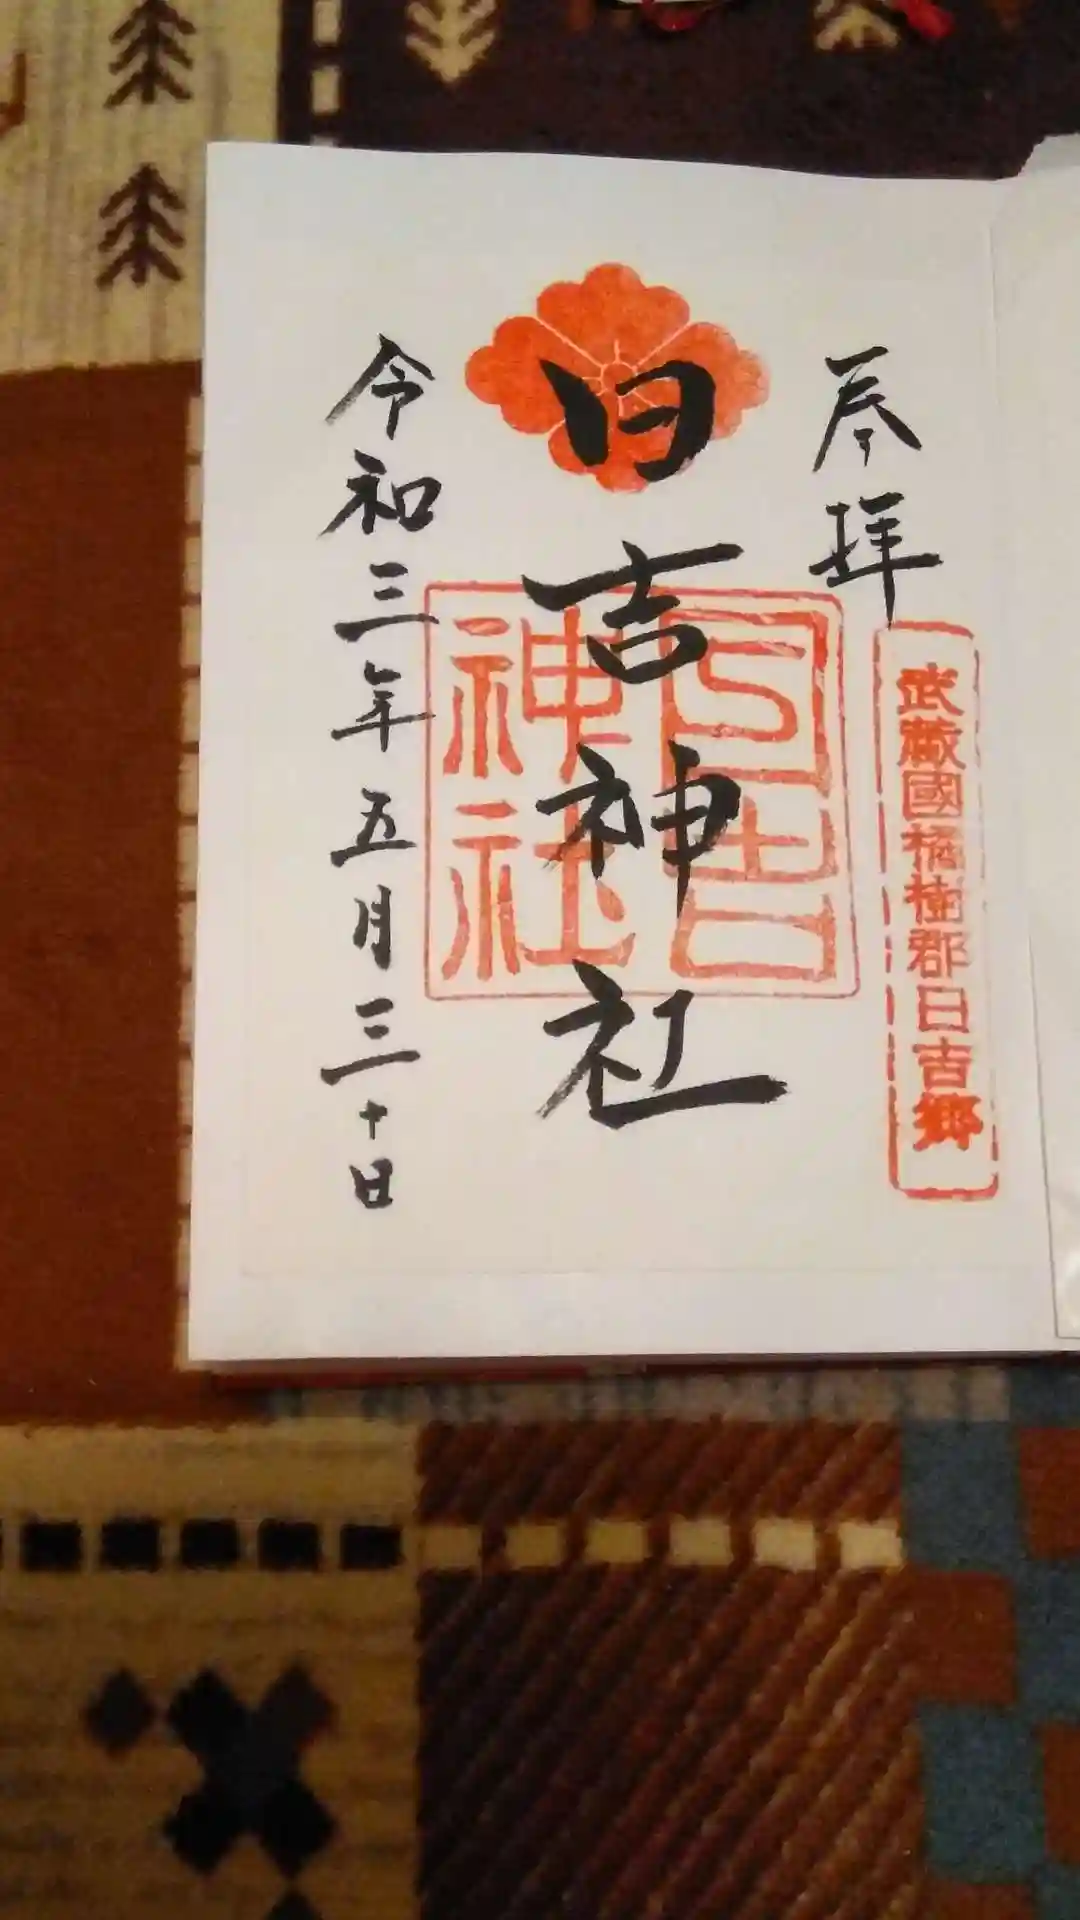 参拝
武蔵國橘樹郡日吉郷
日吉神社
日吉神社
令和三年五月三十日